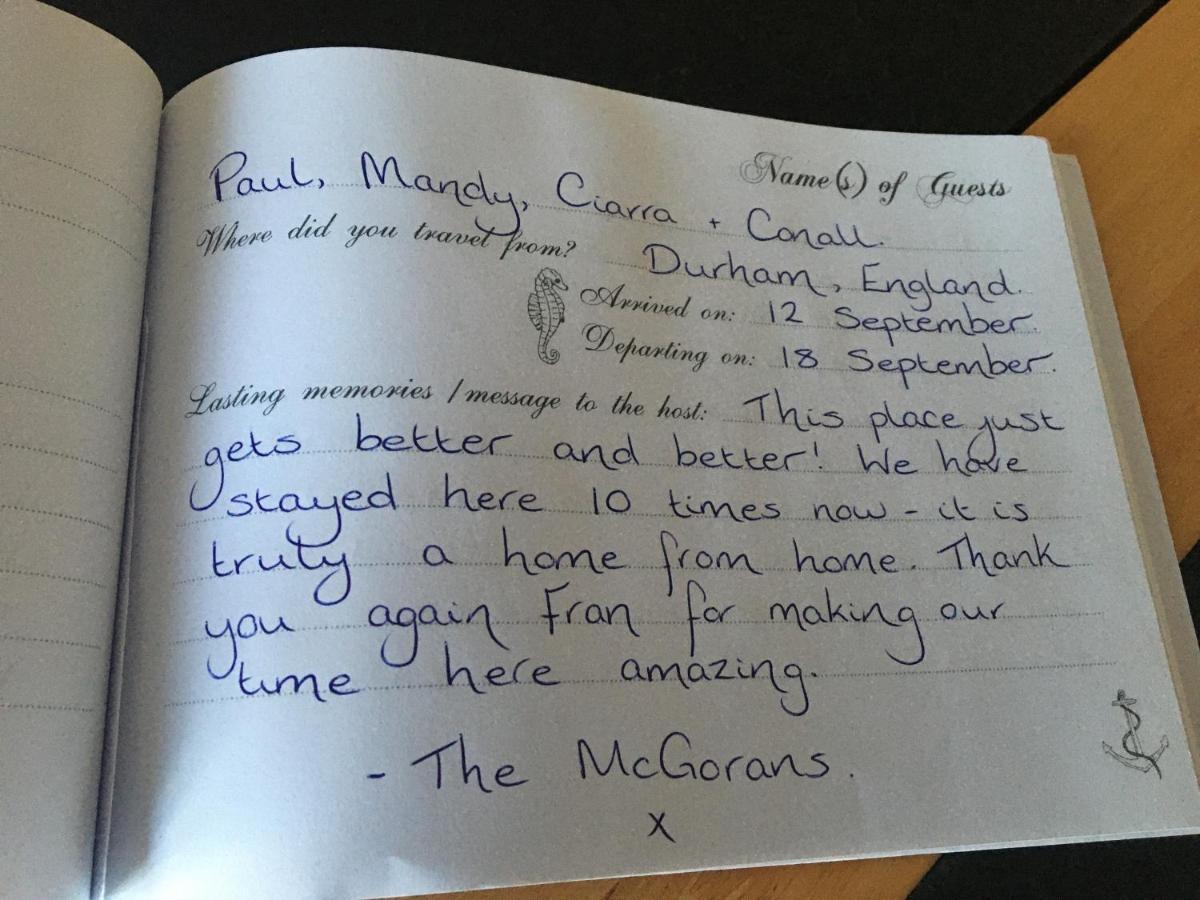 Name(s) of Guests
Paul, Mandy, Ciarra + Conall.
Where did you travel from? Durham, England.
Arrived on: 12 September.
Departing on: 18 September.
Lasting memories / message to the host: This place just
gets better and better! We have
stayed here 10 times now - it is
truly a home from home. Thank
you again Fran for making our
time here amazing.
- The McGorans.
x